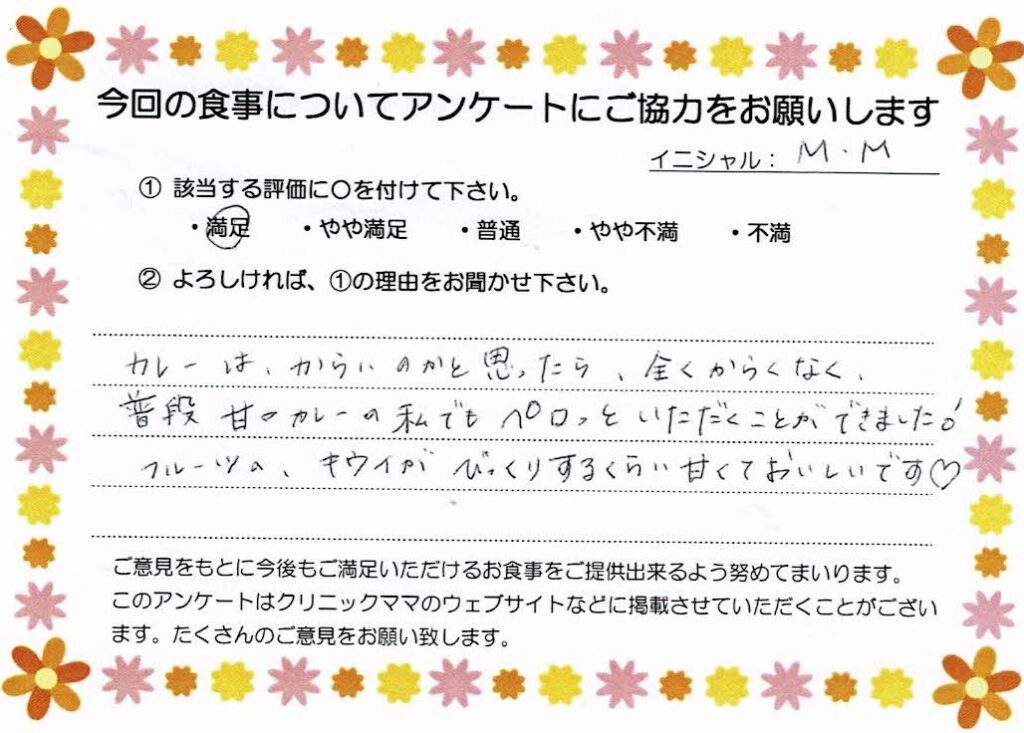 今回の食事についてアンケートにご協力をお願いします
イニシャル： M.M
① 該当する評価に○を付けて下さい。
・満足 ・やや満足 ・普通 ・やや不満 ・不満
② よろしければ、①の理由をお聞かせ下さい。
カレーは、からいのかと思ったら、全くからくなく、
普段 甘口カレーの私でも ペロッといただくことができました!
フルーツの、キウイが びっくりするくらい甘くておいしいです♡
ご意見をもとに今後もご満足いただけるお食事をご提供出来るよう努めてまいります。
このアンケートはクリニックママのウェブサイトなどに掲載させていただくことがござい
ます。たくさんのご意見をお願い致します。